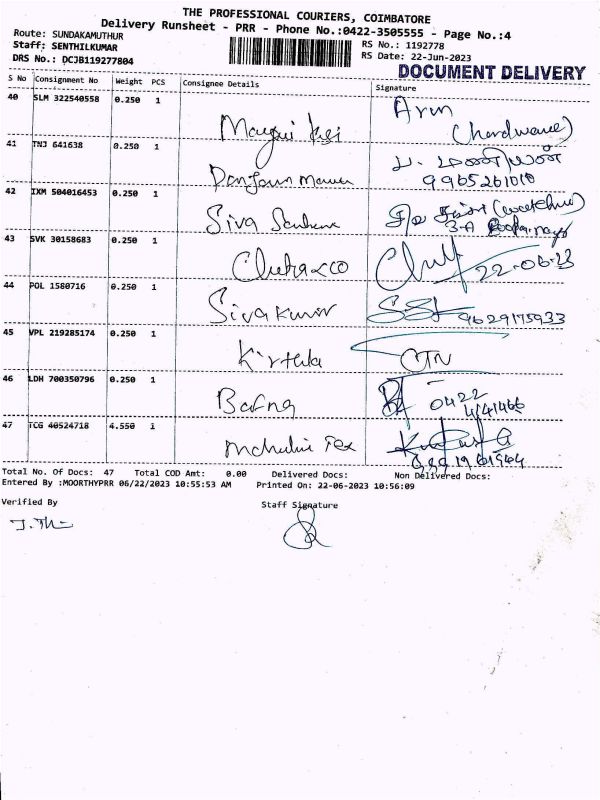 THE PROFESSIONAL COURIERS, COIMBATORE
Delivery Runsheet - PRR - Phone No.:0422-3505555 - Page No.:4
Route: SUNDAKAMUTHUR
RS No.: 1192778
Staff: SENTHILKUMAR
RS Date: 22-Jun-2023
DRS No.: DCJB119277804
DOCUMENT DELIVERY
S No Consignment No Weight PCS Consignee Details Signature
40 SLM 322540558 0.250 1
Arun
(hardware)
41 TNJ 641638 0.250 1
9965261010
42 IXM 504016453 0.250 1
Siva
3-A
43 SVK 30158683 0.250 1
22-06-23
44 POL 1580716 0.250 1
Sivakumar
9629175933
45 VPL 219285174 0.250 1
Kirthika
CTN
46 LDH 700350796 0.250 1
Bafna
0422
4141466
47 TCG 40524718 4.550 1
Tex
Total No. Of Docs: 47 Total COD Amt: 0.00 Delivered Docs: Non Delivered Docs:
Entered By :MOORTHYPRR 06/22/2023 10:55:53 AM Printed On: 22-06-2023 10:56:09
Verified By Staff Signature